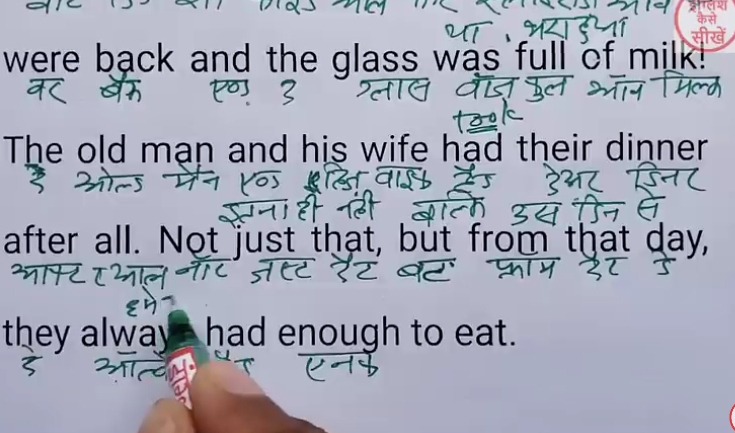 इंग्लिश
कैसे
सीखें
था , भरा हुआ
were back and the glass was full of milk!
वर बैक एण्ड द ग्लास वॉज फुल ऑव मिल्क
took
The old man and his wife had their dinner
दे ओल्ड मैन एण्ड हिज वाइफ हैड देअर डिनर
इतना ही नहीं बल्कि उस दिन से
after all. Not just that, but from that day,
आफ्टर आल नॉट जस्ट दैट बट फ्राम दैट डे
हमे
they always had enough to eat.
दे ऑल्वे एनफ